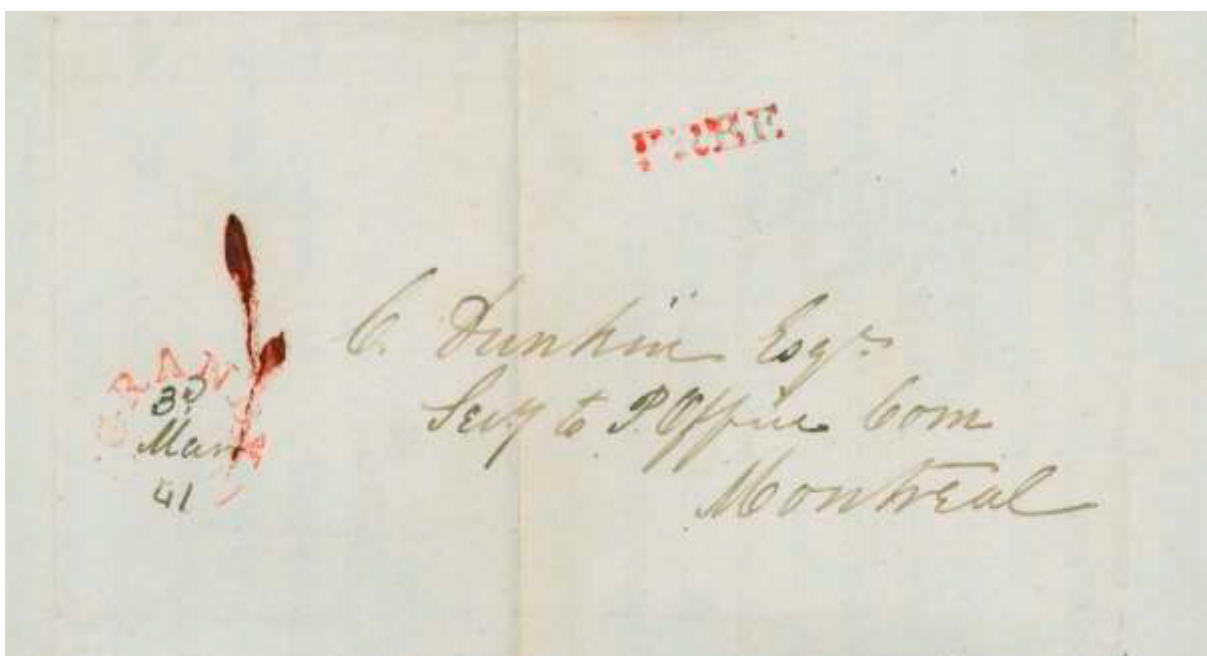 FREE
3d
Mar
41
C. Dunkin Esqr.
Secy to P. Office Com
Montreal